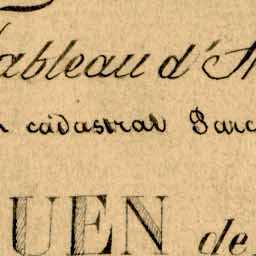 ableau d'A
cadastral Parc
UEN de